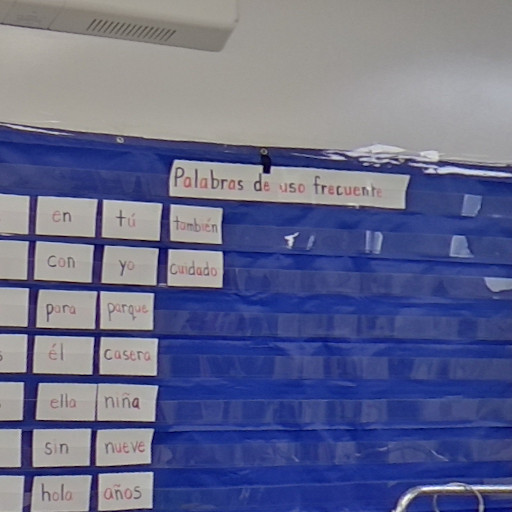 Palabras de uso frecuente
en tú también
con yo cuidado
para parque
él casera
ella niña
sin nueve
hola años